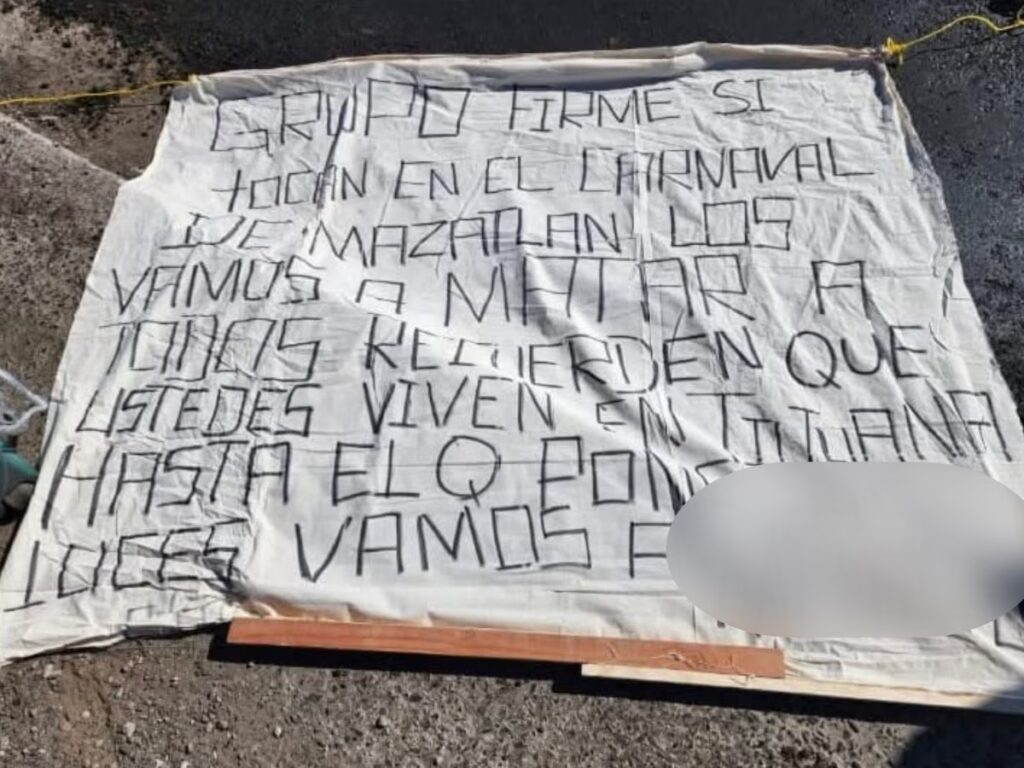 GRUPO FIRME SI
TOCAN EN EL CARNAVAL
DE MAZATLAN LOS
VAMOS A MATAR A
TODOS RECUERDEN QUE
USTEDES VIVEN EN TIJUANA
HASTA EL Q
VAMOS A